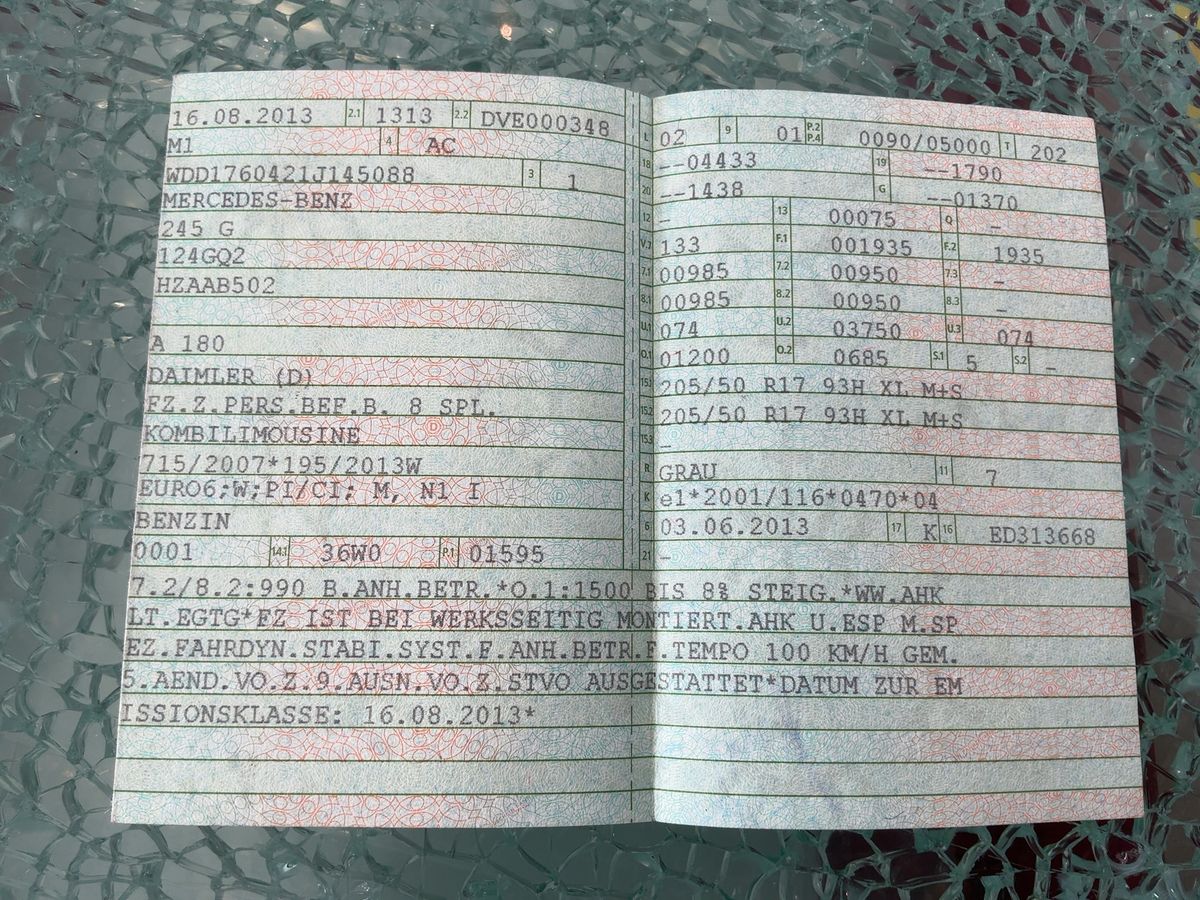 16.08.2013 2.1 1313 2.2 DVE000348
M1 4 AC
WDD1760421J145088 3 1
MERCEDES-BENZ
245 G
124GQ2
HZAAB502
A 180
DAIMLER (D)
FZ.Z.PERS.BEF.B. 8 SPL.
KOMBILIMOUSINE
715/2007*195/2013W
EURO6;W;PI/CI; M, N1 I
BENZIN
0001 14.1 36W0 P.1 01595
L 02 9 01 P.2 P.4 0090/05000 T 202
18 --04433 19 --1790
20 --1438 G --01370
12 - 13 00075 Q -
V.7 133 F.1 001935 F.2 1935
7.1 00985 7.2 00950 7.3 -
8.1 00985 8.2 00950 8.3 -
U.1 074 U.2 03750 U.3 074
O.1 01200 O.2 0685 S.1 5 S.2 -
15.1 205/50 R17 93H XL M+S
15.2 205/50 R17 93H XL M+S
15.3 -
R GRAU 11 7
K e1*2001/116*0470*04
6 03.06.2013 17 K 16 ED313668
21 -
7.2/8.2:990 B.ANH.BETR.*O.1:1500 BIS 8% STEIG.*WW.AHK
LT.EGTG*FZ IST BEI WERKSSEITIG MONTIERT.AHK U.ESP M.SP
EZ.FAHRDYN.STABI.SYST.F.ANH.BETR.F.TEMPO 100 KM/H GEM.
5.AEND.VO.Z.9.AUSN.VO.Z.STVO AUSGESTATTET*DATUM ZUR EM
ISSIONSKLASSE: 16.08.2013*